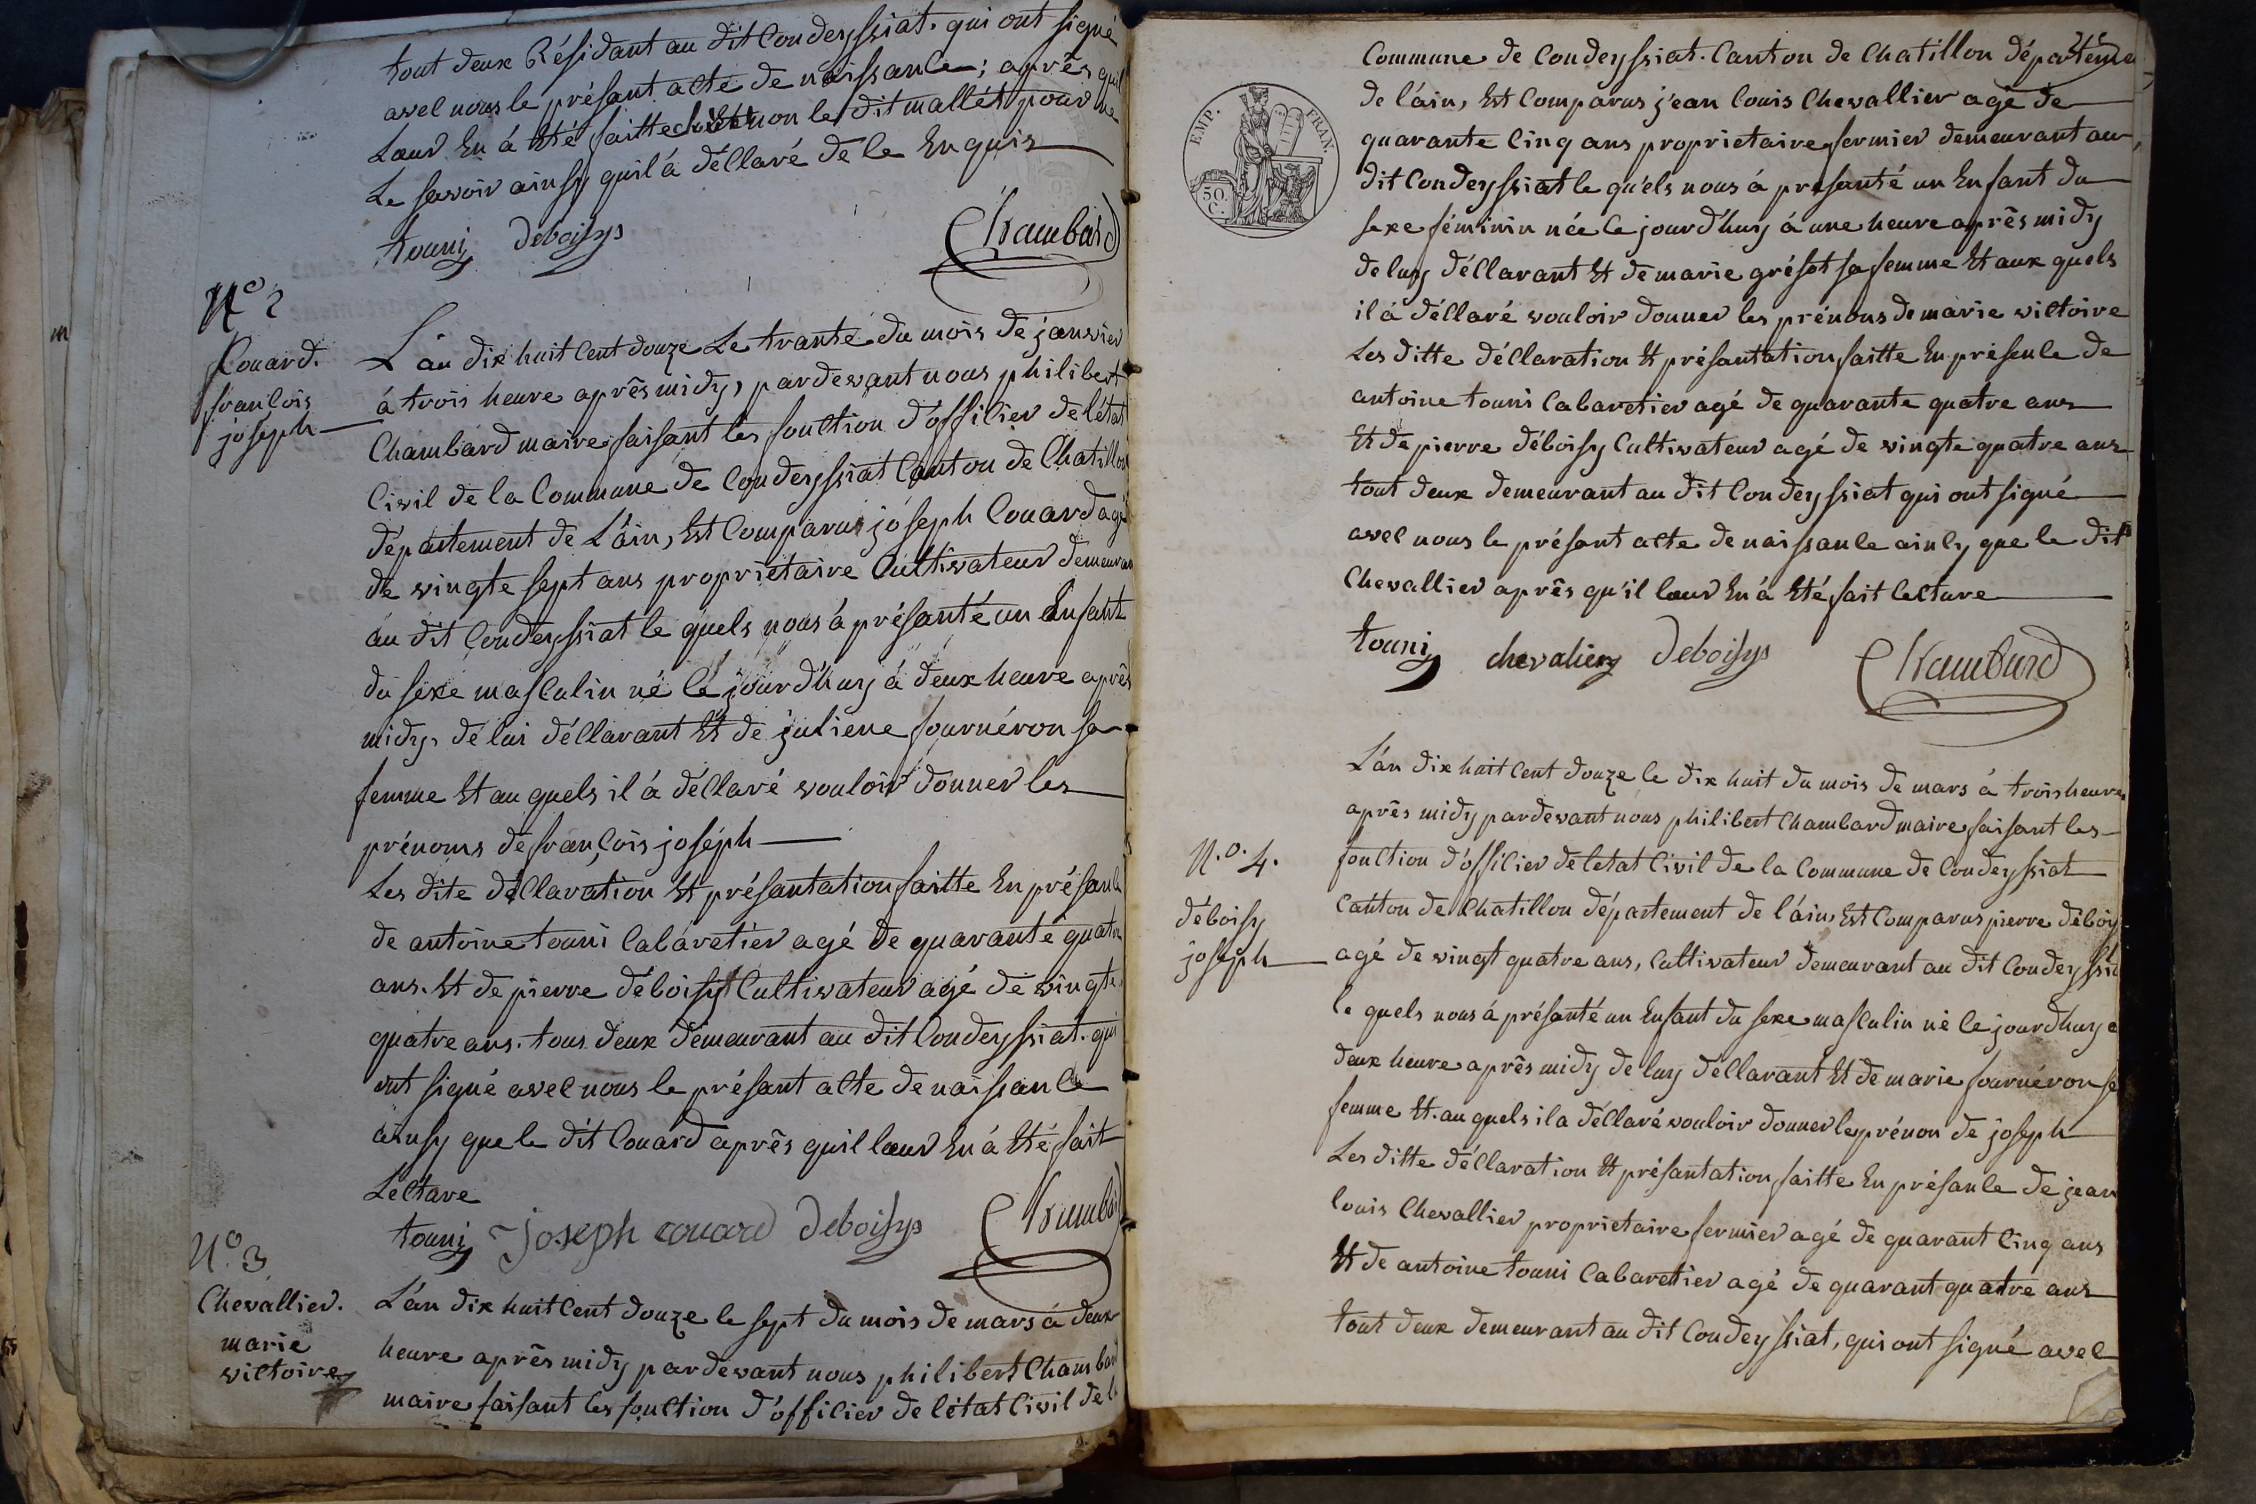 tout deux Résidant au dit Condeyssiat. qui ont signé
avec nous le présant acte de naissance; après quil
Lœur En á Eté faitte non le dit mallét pour ne
Le savoir ainsy quil á déllaré de le Enquis
touni deboisys Chambard
N.o 2
Couard.
francois
joseph
L'an dix huit Cent douze Le trante du mois de janvier
á trois heure après midy, pardevant nous philibert
Chambard maire faisant les fonction d'officier de l'état
Civil de la Commune de Condeyssiat Canton de Chatillon
département de L'áin, Est Comparus joseph Couard agé
de vingte sept ans proprietaire Cultivateur demeurant
au dit Condeyssiat le quels nous á présanté un Enfant
du sexe masculin né le jourd'huy á deux heure après
midy, de lui décclarant Et de juliene fournéron sa
femme Et au quels il á décclaré vouloir donner les
prénoms de françois joséph
Les dite décclaration Et présantation faitte En présance
de antoine touni Cabarétier agé de quarante quatre
ans. Et de pierre déboisy Cultivateur agé de vingte
quatre ans. tous deux demeurant au dit Condeyssiat. qui
ont signé avec nous le présant acte de naissance
ainsy que le dit Couard après quil lœur En á Eté fait
Lecture
touni joseph couard deboisys Chambard
N.o 3
Chevallier.
marie
victoire
L'án dix huit Cent douze le sept du mois de mars á deux
heure après midy pardevant nous philibert Chambard
maire faisant les fonction d'officier de l'état Civil de la
EMP. FRAN.
50 C.
Commune de Condeyssiat. Canton de Chatillon départeme
de l'áin, Est Comparus jean louis Chevallier agé de
quarante Cinq ans proprietaire fermier demeurant au
dit Condeyssiat le quels nous á présanté un Enfant du
sexe féminin née le jourd'huy á une heure après midy
de luy décclarant Et de marie grésot sa femme Et aux quels
il á décclaré vouloir donner les prénons de marie victoire
Les ditte décclaration Et présantation faitte En présence de
antoine touni Cabaretier agé de quarante quatre ans
Et de pierre déboisy Cultivateur agé de vingte quatre ans
tout deux demeurant au dit Condeyssiat qui ont signé
avec nous le présant acte de naissance ainsy que le dit
Chevallier après qu'il lœur En á Eté fait lecture
touni chevalier deboisys Chambard
N.o. 4.
déboisy
joseph
L'án dix huit Cent douze le dix huit du mois de mars á trois heure
après midy pardevant nous philibert Chambard maire faisant les
fonction d'officier de letat Civil de la Commune de Condeyssiat
Canton de Chatillon département de l'áin, Est Comparus pierre déboisy
agé de vingt quatre ans, Cultivateur demeurant au dit Condeyssiat
le quels nous á présanté un Enfant du sexe masculin né le jourdhuy a
deux heure après midy de luy décclarant Et de marie fournéron sa
femme Et. au quels il a décclaré vouloir donner le prénon de joseph
Les ditte décclaration Et présantation faitte En présance de jean
louis Chevallier proprietaire fermier agé de quarant Cinq ans
Et de antoine touni Cabaretier agé de quarant quatre ans
tout deux demeurant au dit Condeyssiat, qui ont signé avec